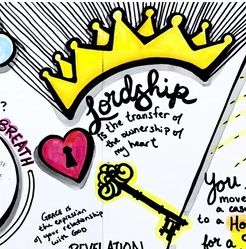 ?
BREATH
Lordship
is the transfer of
the ownership of
my heart
Grace is
the expression
of your relationship
with God
REVELATION
You
move
a case
to a He
for a